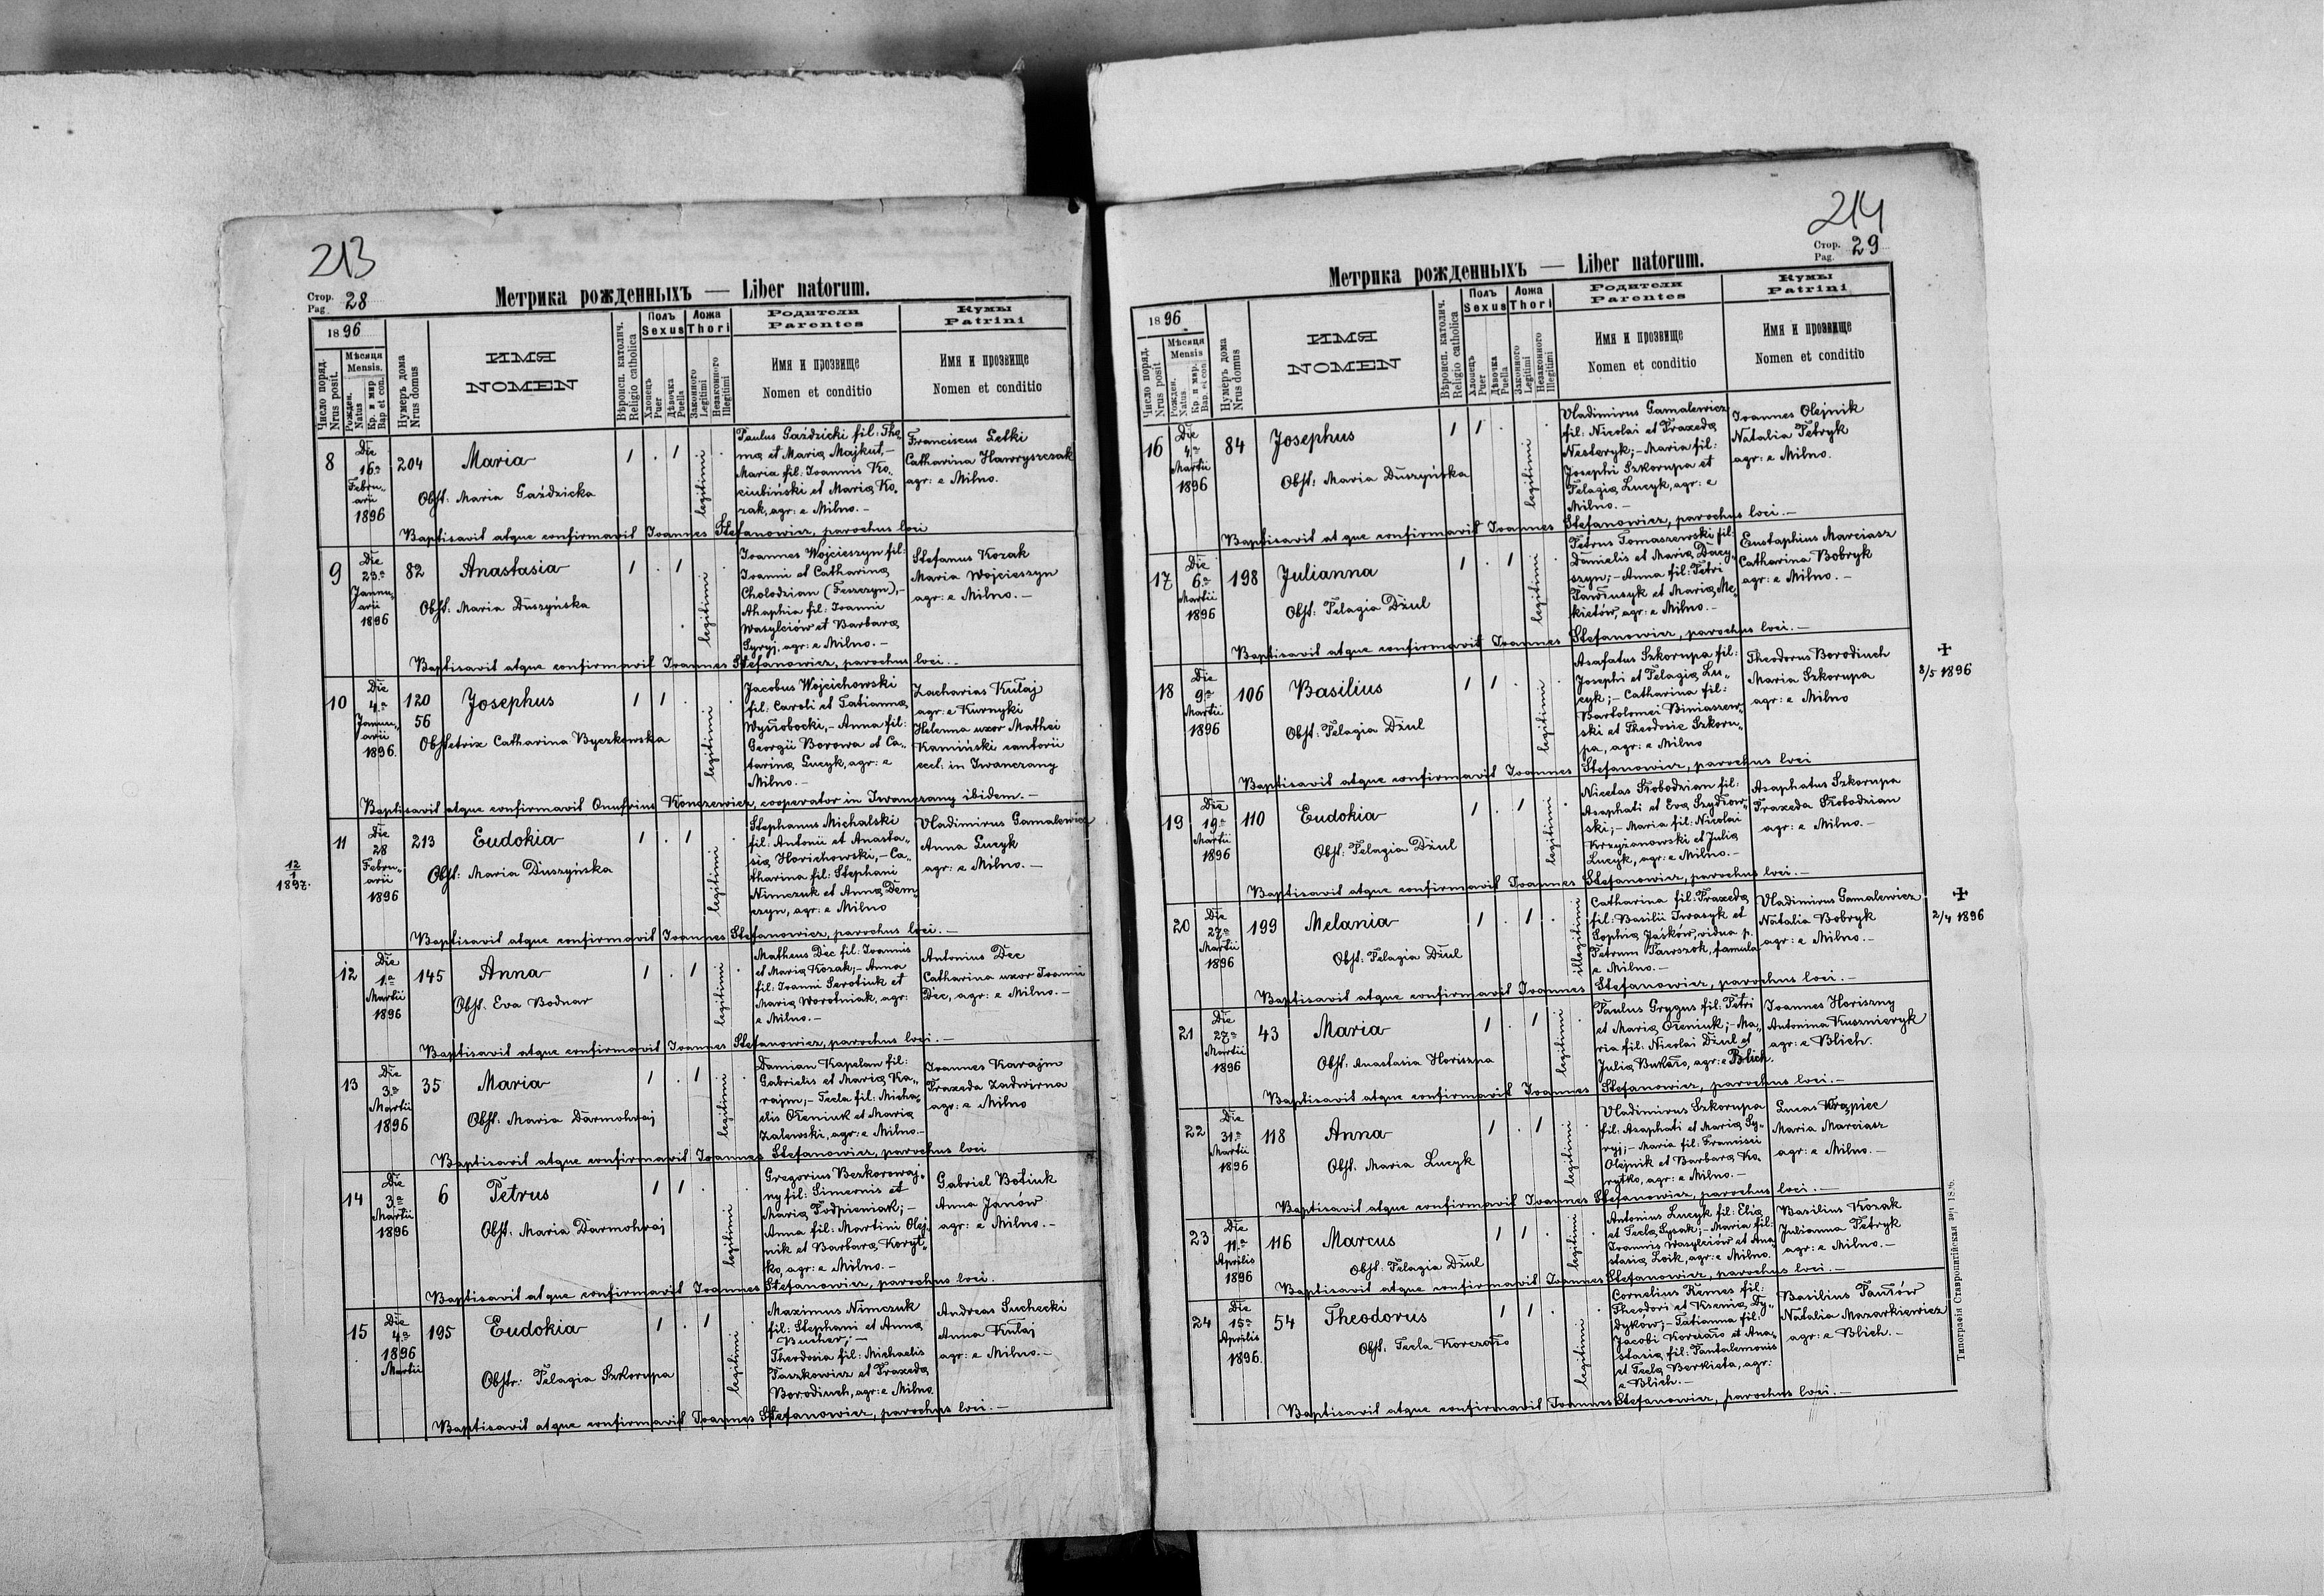 213
Стор.
Pag. 28
Метрика рожденныхъ — Liber natorum.
1896
Число поряд.
Nrus posit.
Мѣсяця
Mensis.
Рожден.
Natus
Кр. и мир
Bap et con.
Нумеръ дома
Nrus domus
ИМЯ
NOMEN
Вѣроисп. католич.
Religio catholica
Полъ
Sexus
Хлопецъ
Puer
Дѣвочка
Puella
Ложа
Thori
Законного
Legitimi
Незаконного
Illegitimi
Родители
Parentes
Имя и прозвище
Nomen et conditio
Кумы
Patrini
Имя и прозвище
Nomen et conditio
8
Die
16a
Febru„
arii
1896
204
Maria
Obst: Maria Gaździcka
1 . 1
legitimi
Paulus Gaździcki fil: Tho„
mæ et Maria Majkut,-
Maria fil: Joannis Ko„
ciubiński et Maria Ko„
zak, agr: e Milno.-
Franciscus Letki
Catharina Hawryszczak
agr: e Milno.
Baptisavit atque confirmavit Joannes Stefanowicz, parochus loci
9
Die
23a
Janu„
arii
1896
82
Anastasia
Obst: Maria Duszyńska
1 . 1
legitimi
Joannes Wojcieszyn fil:
Joanni et Catharina
Cholodzian (Feszczyn),-
Ahaphia fil: Joanni
Wasylciów et Barbara
Syryj, agr: e Milno.-
Stefanus Kozak
Maria Wojcieszyn
agr: e Milno.-
Baptisavit atque confirmavit Joannes Stefanowicz, parochus loci.
10
Die
4a
Janu„
arii
1896.
120
56
Josephus
Obstetrix Catharina Byczkowska
1 1
legitimi
Jacobus Wojcichowski
fil: Caroli et Tatianna
Wysłobocki,- Anna fil:
Georgii Borowa et Ca„
tarina Lucyk, agr: e
Milno.-
Zacharias Kułaj
agr: e Kurnyki
Helenna uxor Mathei
Kamiński cantorii
eccl: in Iwanczany
Baptisavit atque confirmavit Onufrius Konczewicz, cooperator in Iwanczany ibidem.-
12
1
1897.
11
Die
28
Febru„
arii
1896
213
Eudokia
Obst: Maria Duszyńska
1 . 1
legitimi
Stephanus Michalski
fil: Antonii et Anasta„
sia Horichowski,- Ca„
tharina fil: Stephani
Nimczuk et Anna Dem„
czyn, agr: e Milno
Vladimirus Gamalewicz
Anna Lucyk
agr: e Milno.-
Baptisavit atque confirmavit Joannes Stefanowicz, parochus loci.-
12
Die
1a
Martii
1896
145
Anna
Obst. Eva Bodnar
1 . 1
legitimi
Matheus Dec fil: Joannis
et Maria Kozak;- Anna
fil: Joanni Serotiuk et
Maria Worotniak, agr:
e Milno.-
Antonius Dec
Catharina uxor Joannii
Dec, agr: e Milno.-
Baptisavit atque confirmavit Joannes Stefanowicz, parochus loci.-
13
Die
3a
Martii
1896
35
Maria
Obst: Maria Darmohraj
1 . 1
legitimi
Damian Kapelan fil:
Gabrielis et Maria Ka„
rajm;- Tecla fil: Micha„
elis Oleniuk et Maria
Zalewski, agr: e Milno.-
Joannes Karajm
Praxeda Zadwirna
agr: e Milno
Baptisavit atque confirmavit Joannes Stefanowicz, parochus loci
14
Die
3a
Martii
1896
6
Petrus
Obst: Maria Darmohraj
1 1
legitimi
Gregorius Bezkorowaj„
ny fil: Simeonis et
Maria Podpieniak;-
Anna fil: Martini Olej„
nik et Barbara Koryt„
ko, agr: e Milno.-
Gabriel Botiuk
Anna Janów
agr: e Milno.-
Baptisavit atque confirmavit Joannes Stefanowicz, parochus loci.
15
Die
4a
1896
Martii
195
Eudokia
Obstr: Pelagia Szkorupa
1 . 1
legitimi
Maximus Nimczuk
fil: Stephani et Anna
Bucher;-
Theodosia fil: Michaelis
Paszkowicz et Praxeda
Borodiuch, agr: e Milno
Andreas Suchecki
Anna Kułaj
agr: e Milno.-
Baptisavit atque confirmavit Joannes Stefanowicz, parochus loci.-
214
Стор.
Pag. 29
Метрика рожденныхъ — Liber natorum.
1896.
Число поряд.
Nrus posit
Мѣсяця
Mensis
Рожден.
Natus.
Кр. и мир.
Bap. et con.
Нумеръ дома
Nrus domus
ИМЯ
NOMEN
Вѣроисп. католич.
Religio catholica
Полъ
Sexus
Хлопецъ
Puer
Дѣвочка
Puella
Ложа
Thori
Законного
Legitimi
Незаконного
Illegitimi
Родители
Parentes
Имя и прозвище
Nomen et conditio
Кумы
Patrini
Имя и прозвище
Nomen et conditio
16
Die
4a
Martii
1896
84
Josephus
Obst: Maria Duszyńska
1 1 .
legitimi
Vladimirus Gamalewicz
fil: Nicolai et Praxeda
Nesteryk;- Maria fil:
Josephi Szkorupa et
Pelagia Lucyk, agr: e
Milno.-
Joannes Olejnik
Natalia Petryk
agr: e Milno.
Baptisavit atque confirmavit Joannes Stefanowicz, parochus loci.-
17
Die
6a
Martii
1896
198
Julianna
Obst: Pelagia Dżul
1 . 1
legitimi
Petrus Tomaszewski fil:
Danielis et Maria Dacy„
szyn;- Anna fil: Petri
Pawlusyk et Maria Me„
kietów, agr: e Milno.-
Eustaphius Marciasz
Catharina Bobryk
agr: e Milno.-
Baptisavit atque confirmavit Joannes Stefanowicz, parochus loci.-
18
Die
9a
Martii
1896
106
Basilius
Obst: Pelagia Dżul
1 1 .
legitimi
Asafatus Szkorupa fil:
Josephi et Pelagia Lu„
cyk;- Catharina fil:
Bartolomei Biniaszew„
ski et Theodosie Szkoru„
pa, agr: e Milno
Theodorus Borodiuch
Maria Szkorupa
agr: e Milno
✝
8/5 1896
Baptisavit atque confirmavit Joannes Stefanowicz, parochus loci
19
Die
19a
Martii
1896
110
Eudokia
Obst: Pelagia Dżul
1 . 1
legitimi
Nicetas Słobodzian fil:
Asaphati et Eva Szydłow„
ski;- Maria fil: Nicolai
Krzyżanowski et Julia
Lucyk, agr: e Milno.-
Asaphatus Szkorupa
Praxeda Słobodzian
agr: e Milno.-
Baptisavit atque confirmavit Joannes Stefanowicz, parochus loci.-
20
Die
27a
Martii
1896
199
Melania
Obst: Pelagia Dżul
1 . 1 .
illegitimi
Catharina fil: Praxeda
fil: Basilii Iwasyk et
Sophia Jaśków, vidua p.
Petrum Pawoszok, famula
e Milno.-
Vladimirus Gamalewicz
Natalia Bobryk
agr: e Milno.-
✝
2/4 1896
Baptisavit atque confirmavit Joannes Stefanowicz, parochus loci.-
21
Die
27a
Martii
1896
43
Maria
Obst: Anastasia Horiszna
1 . 1
legitimi
Paulus Grygus fil: Petri
et Maria Oleniuk;- Ma„
ria fil: Nicolai Dżul et
Julia Bukało, agr: e Blich.
Joannes Horiszny
Antonina Kusznieryk
agr: e Blich.
Baptisavit atque confirmavit Joannes Stefanowicz, parochus loci.-
22
Die
31a
Martii
1896
118
Anna
Obst. Maria Lucyk
1 . 1
legitimi
Vladimirus Szkorupa
fil: Asaphati et Maria Sy„
ryj;- Maria fil: Francisci
Olejnik et Barbara Ko„
rytko, agr: e Milno.-
Lucas Krąpiec
Maria Marciasz
agr: e Milno.-
Baptisavit atque confirmavit Joannes Stefanowicz, parochus loci.-
23
Die
11a
Aprilis
1896
116
Marcus
Obst: Pelagia Dżul
1 1 .
legitimi
Antonius Lucyk fil: Elia
et Tecla Sysak;- Maria fil:
Joannis Wasylciów et Ana„
stasia Loik, agr: e Milno.
Basilius Kozak
Julianna Petryk
agr: e Milno.-
Baptisavit atque confirmavit Joannes Stefanowicz, parochus loci.-
24
Die
15a
Aprilis
1896.
54
Theodorus
Obst. Tecla Korczało
1 1 .
legitimi
Cornelius Remes fil:
Theodori et Ksenia Dy„
dyków;- Tatianna fil:
Jacobi Korczało et Ana„
stasia fil: Pantalemonis
et Tecla Berkieta, agr:
e Blich.-
Basilius Pawłów
Natalia Mazarkiewicz
agr: e Blich.-
Baptisavit atque confirmavit Joannes Stefanowicz, parochus loci.-
Типографія Ставропигійская